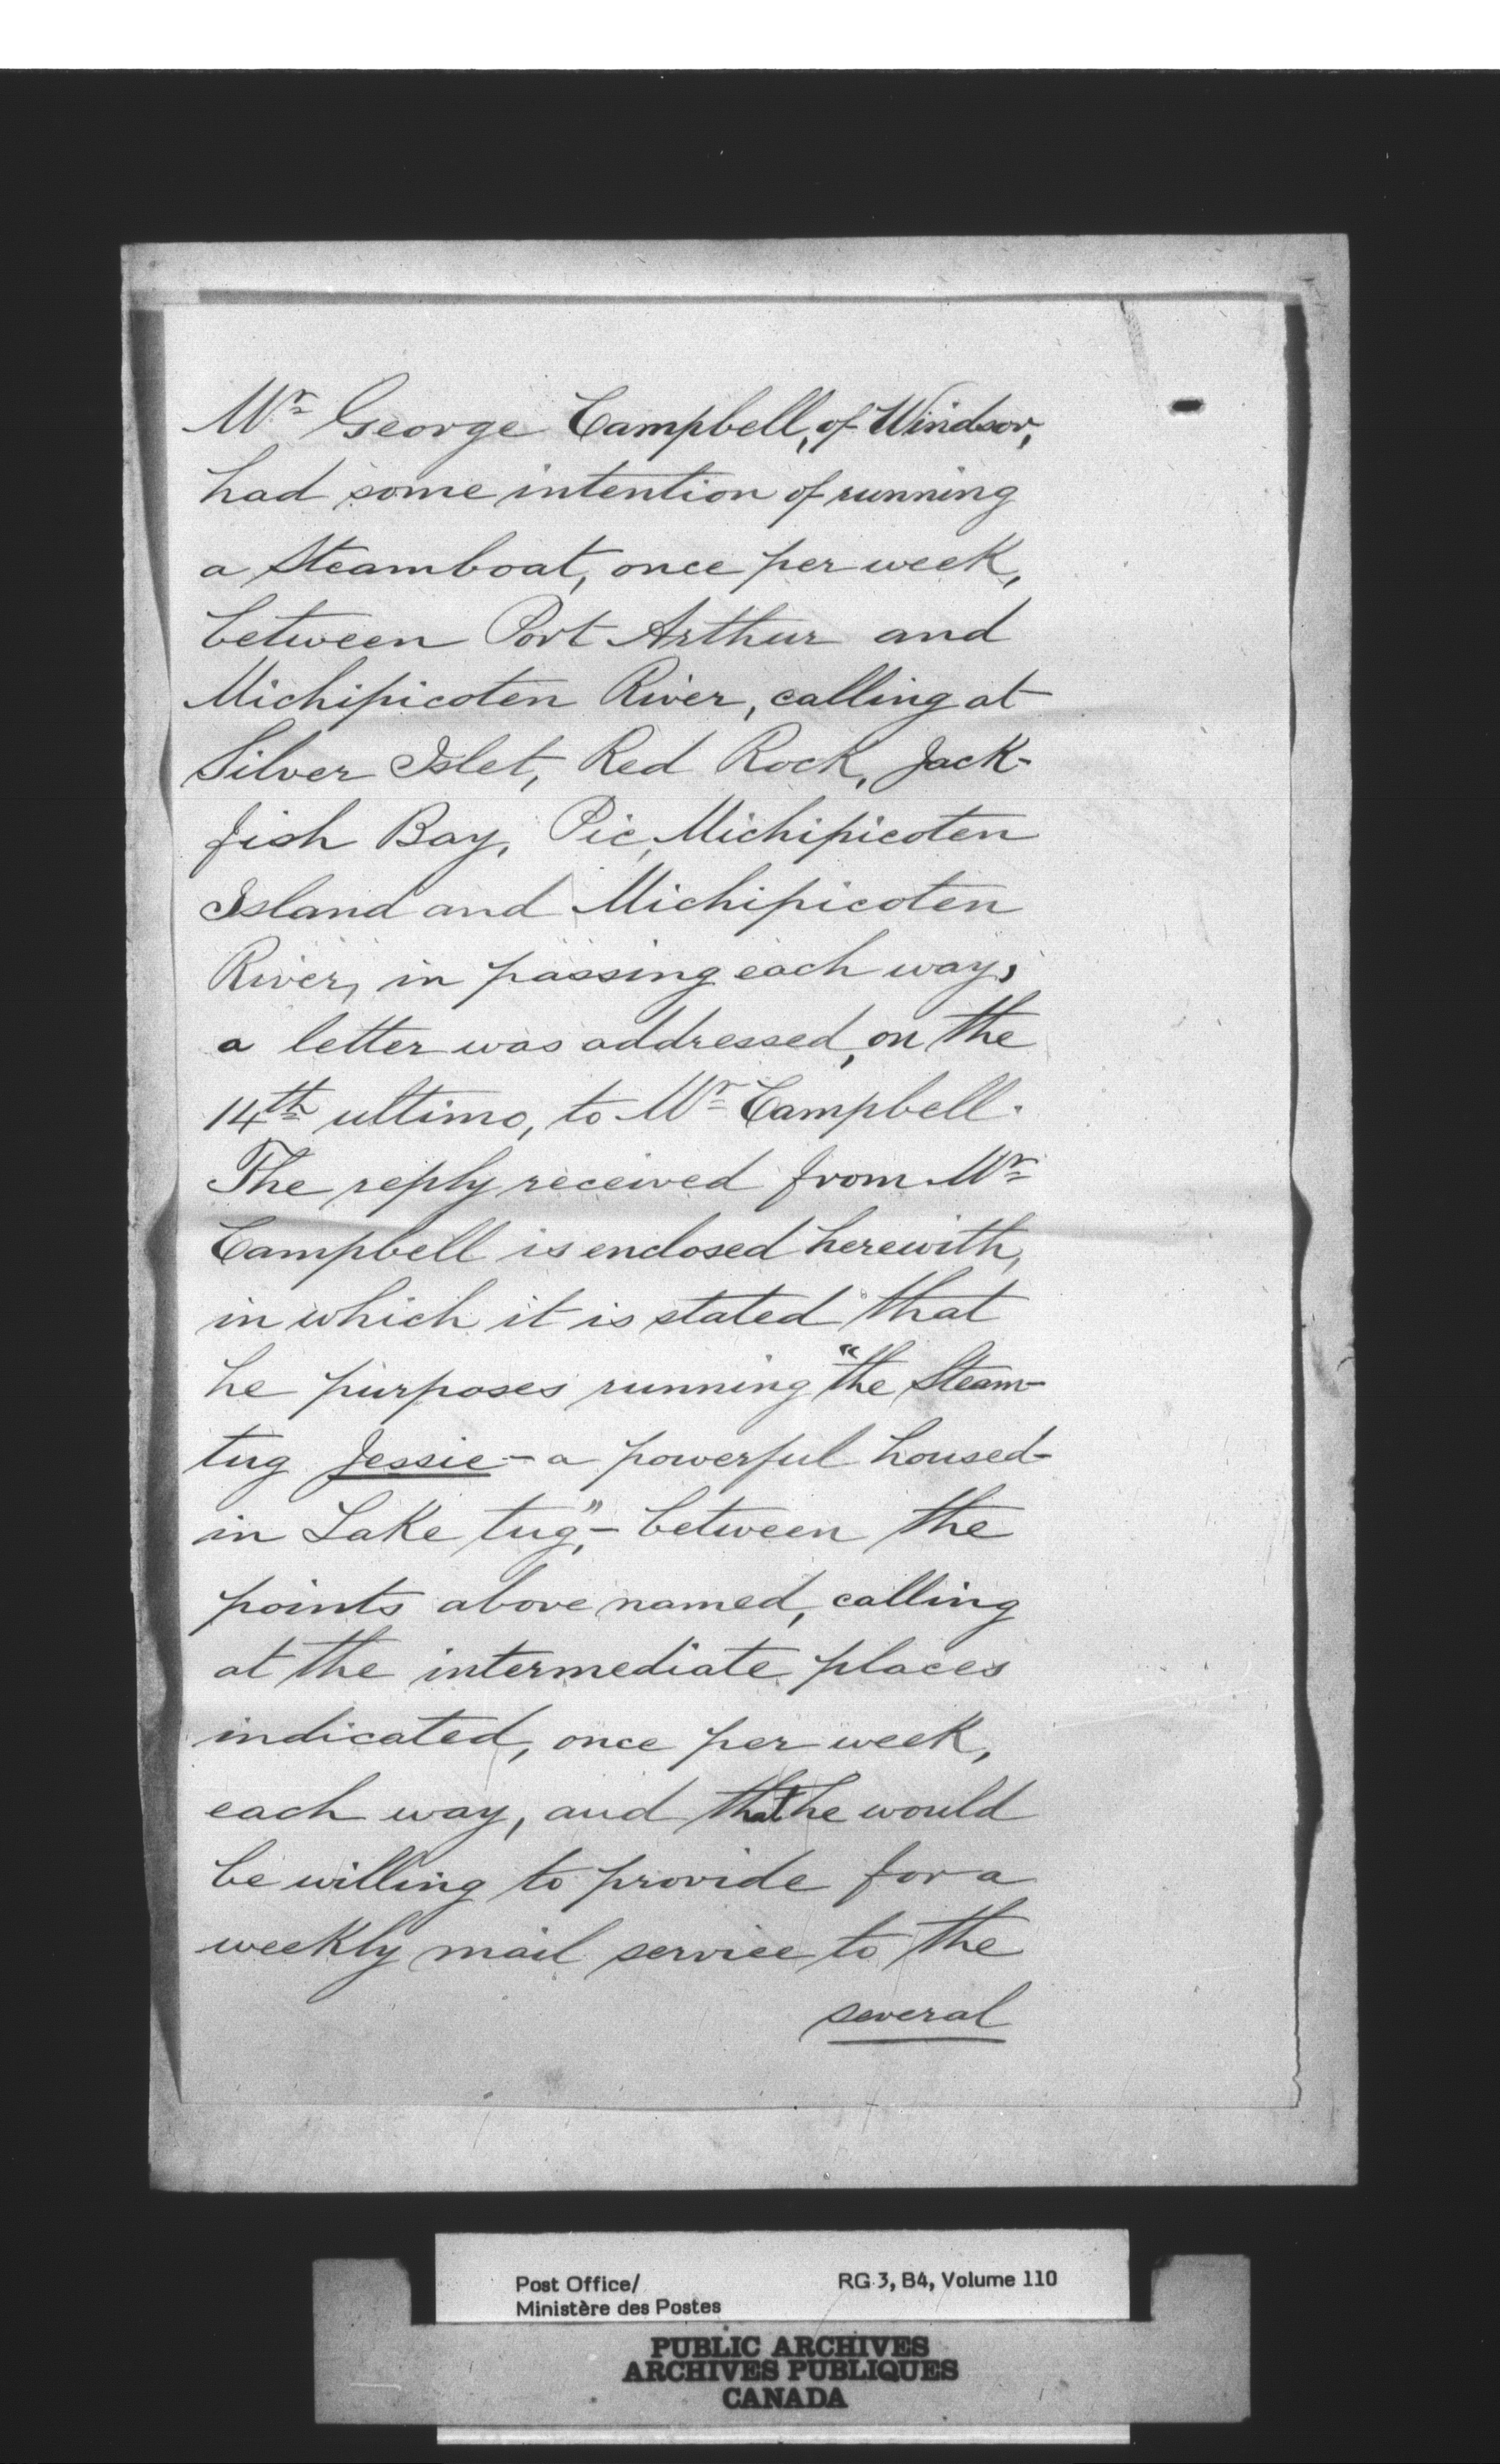 Mr George Campbell, of Windsor,
had some intention of running
a Steamboat, once per week,
between Port Arthur and
Michipicoten River, calling at
Silver Islet, Red Rock, Jack-
fish Bay, Pic, Michipicoten
Island and Michipicoten
River, in passing each way,
a letter was addressed, on the
14th ultimo, to Mr Campbell.
The reply received from Mr
Campbell is enclosed herewith,
in which it is stated that
he purposes running "the Steam-
tug Jessie - a powerful housed-
in Lake tug", - between the
points above named, calling
at the intermediate places
indicated, once per week,
each way, and that he would
be willing to provide for a
weekly mail service to the
several
Post Office/ RG 3, B4, Volume 110
Ministère des Postes
PUBLIC ARCHIVES
ARCHIVES PUBLIQUES
CANADA